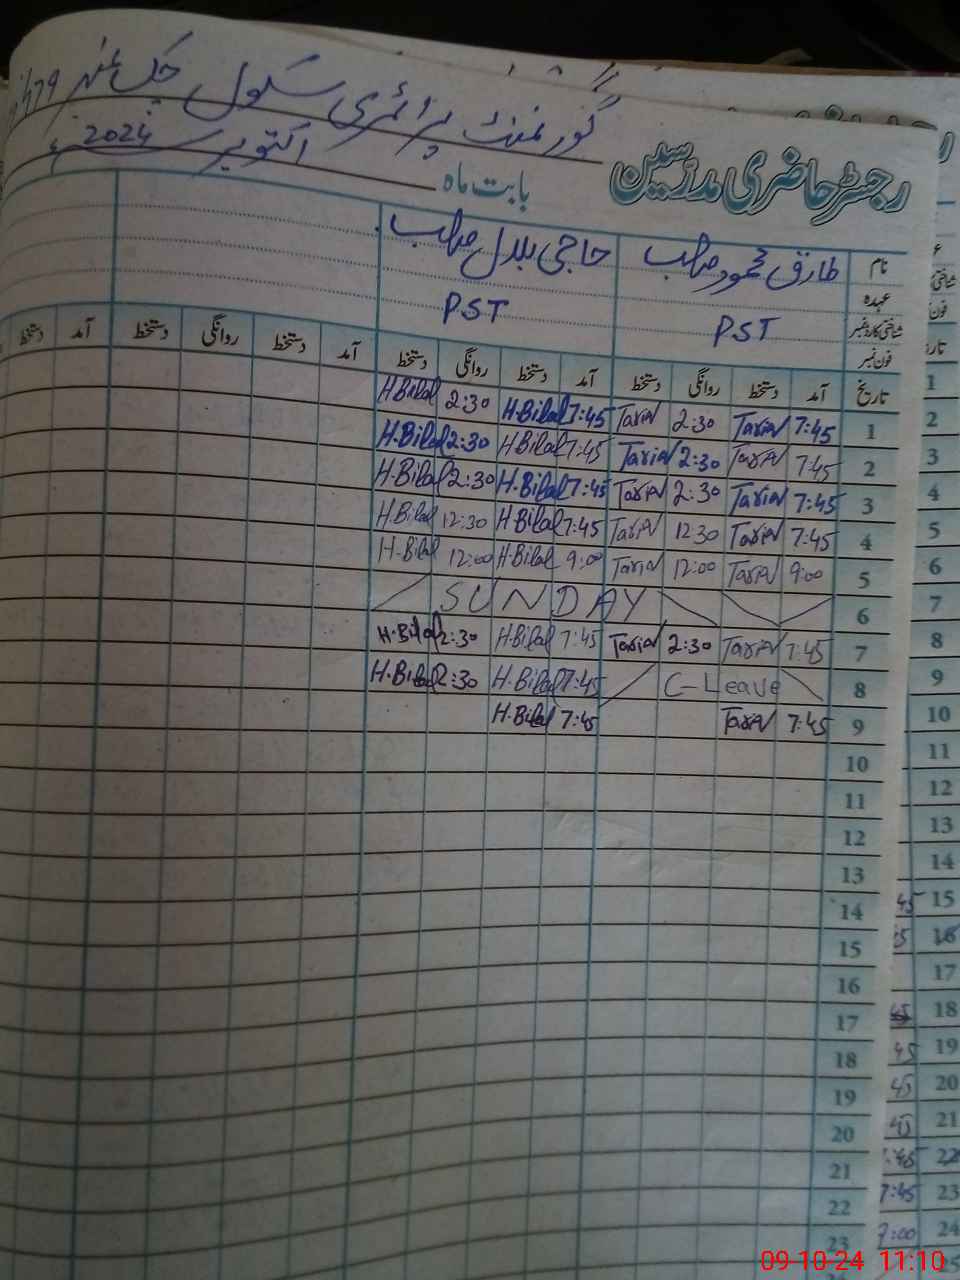 گورنمنٹ پرائمری سکول چک نمبر 479
رجسٹر حاضری مدرسین
بابت ماہ اکتوبر 2024ء
نام طارق محمود صاحب حاجی بلال صاحب
عہدہ PST PST
شناختی کارڈ نمبر
فون نمبر
تاریخ آمد دستخط روانگی دستخط آمد دستخط روانگی دستخط آمد دستخط روانگی دستخط آمد دستخط
1 7:45 Tariq 2:30 Tariq 7:45 H.Bilal 2:30 H.Bilal
2 7:45 Tariq 2:30 Tariq 7:45 H.Bilal 2:30 H.Bilal
3 7:45 Tariq 2:30 Tariq 7:45 H.Bilal 2:30 H.Bilal
4 7:45 Tariq 12:30 Tariq 7:45 H.Bilal 12:30 H.Bilal
5 9:00 Tariq 12:00 Tariq 9:00 H.Bilal 12:00 H.Bilal
6 SUNDAY
7 7:45 Tariq 2:30 Tariq 7:45 H.Bilal 2:30 H.Bilal
8 C-Leave 7:45 H.Bilal 2:30 H.Bilal
9 7:45 Tariq 7:45 H.Bilal
10
11
12
13
14
15
16
17
18
19
20
21
22
23
1
2
3
4
5
6
7
8
9
10
11
12
13
14
15 45
16
17
18 45
19 45
20 45
21 45
22 7:45
23 7:45
24 7:00
25
09-10-24 11:10